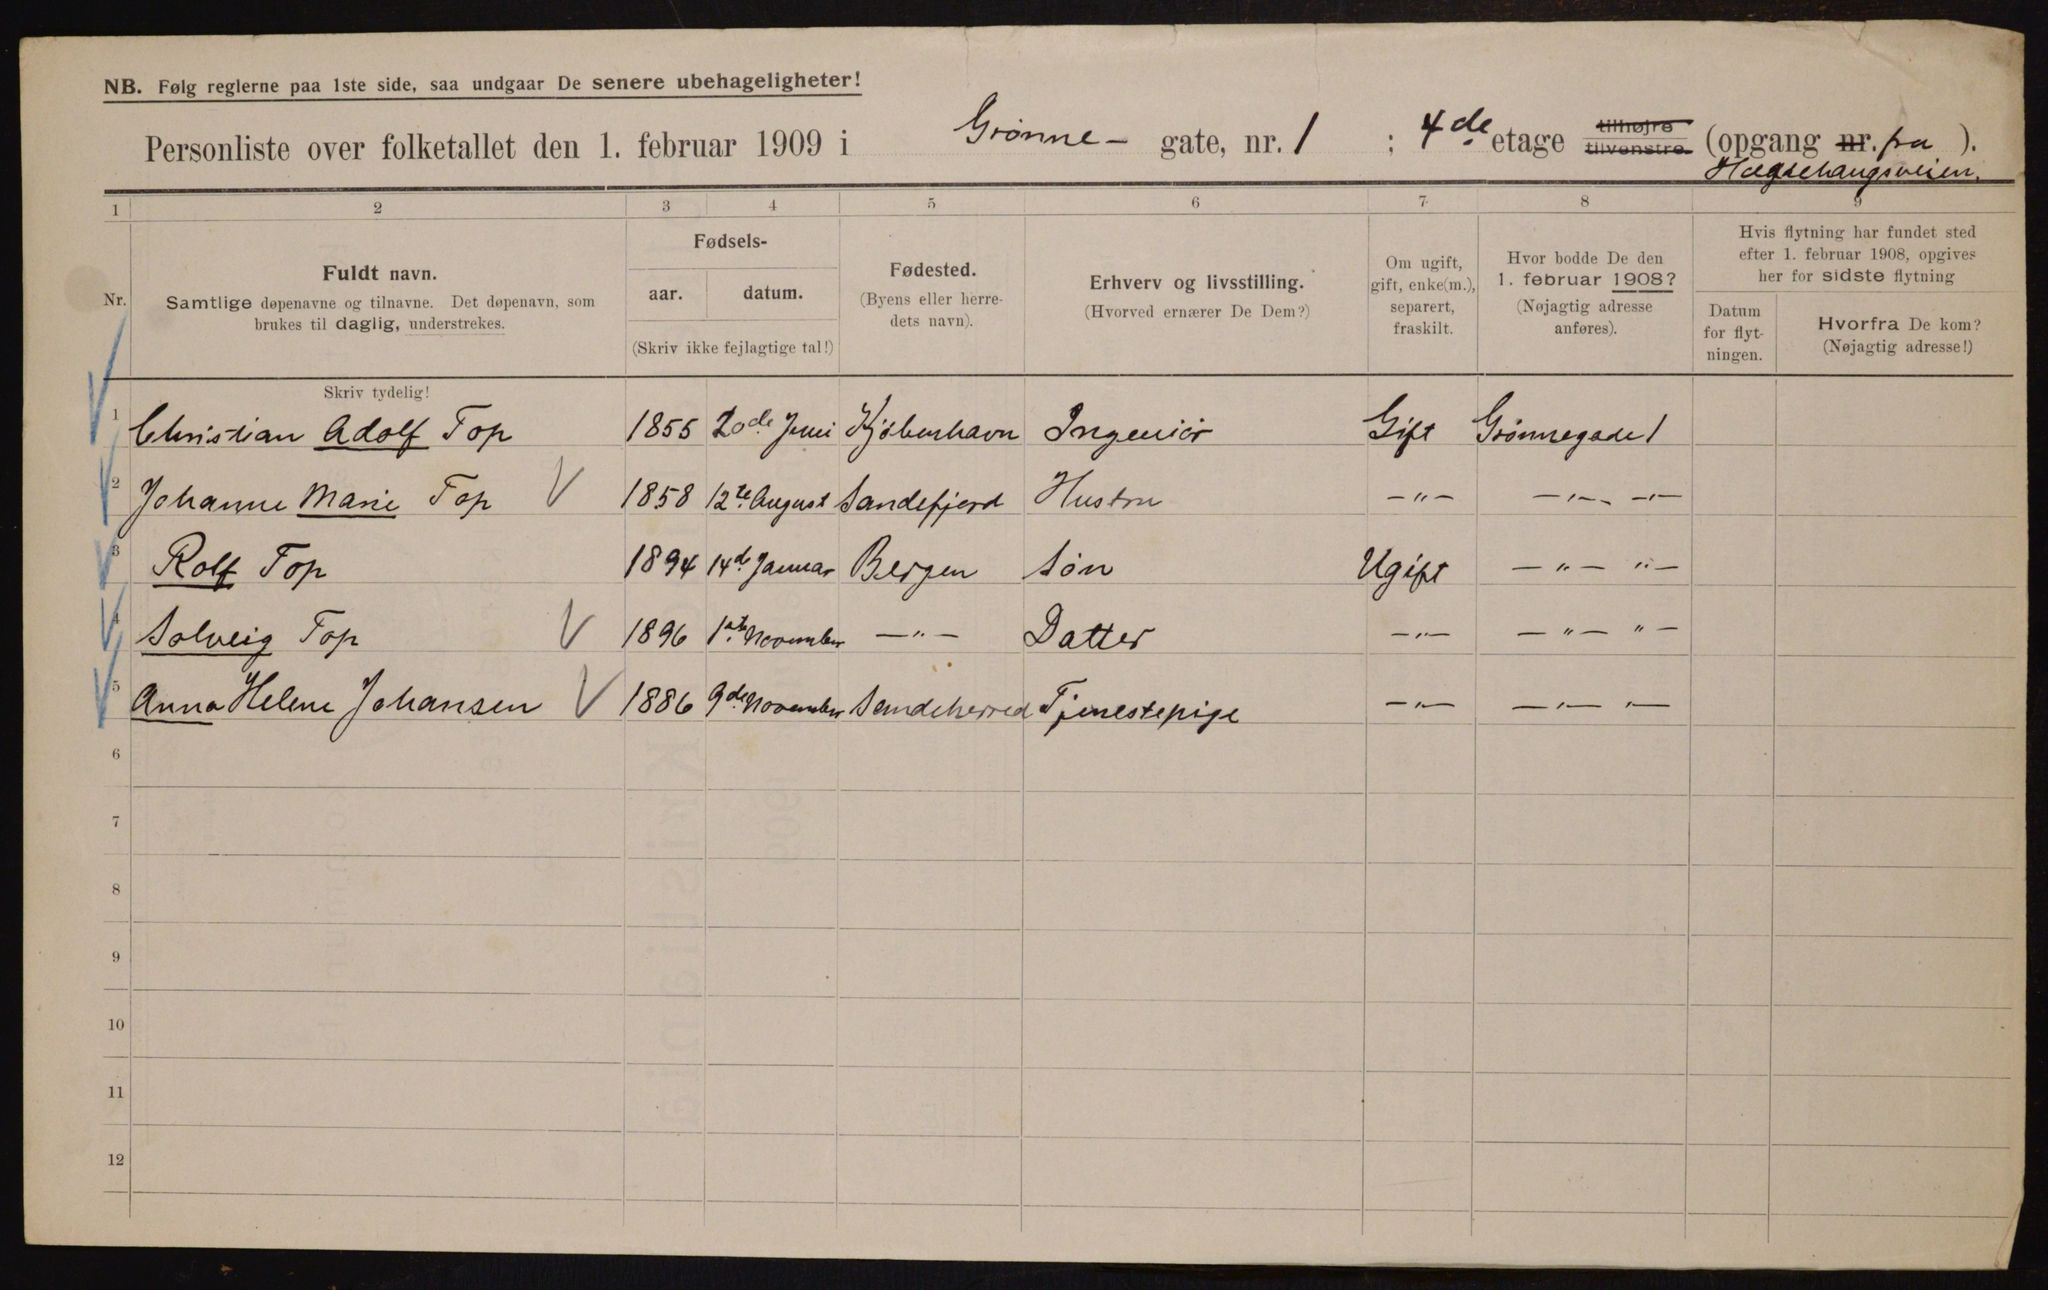 NB. Følg reglerne paa 1ste side, saa undgaar De senere ubehageligheter!
Personliste over folketallet den 1. februar 1909 i Grønne- gate, nr. 1 ; 4de etage tilhøjre tilvenstre (opgang nr. fra ).
Hægdehaugsveien.
1 2 3 4 5 6 7 8 9
Nr.
Fuldt navn.
Samtlige døpenavne og tilnavne. Det døpenavn, som
brukes til daglig, understrekes.
Fødsels-
aar. datum.
(Skriv ikke fejlagtige tal!)
Fødested.
(Byens eller herre-
dets navn).
Erhverv og livsstilling.
(Hvorved ernærer De Dem?)
Om ugift,
gift, enke(m.),
separert,
fraskilt.
Hvor bodde De den
1. februar 1908?
(Nøjagtig adresse
anføres).
Hvis flytning har fundet sted
efter 1. februar 1908, opgives
her for sidste flytning
Datum
for flyt-
ningen.
Hvorfra De kom?
(Nøjagtig adresse!)
Skriv tydelig!
1 Christian Adolf Top 1855 20de Juni Kjøbenhavn Ingeniør Gift Grønnegade 1
2 Johanne Marie Top V 1858 12te August Sandefjord Hustru —"— —"— —"—
3 Rolf Top 1894 14de Januar Bergen Søn Ugift —"— "—
4 Solveig Top V 1896 1ste November —"— Datter —"— —"— "—
5 Anna Helene Johansen V 1886 9de November Sandeherred Tjenestepige —"— —"— "—
6
7
8
9
10
11
12